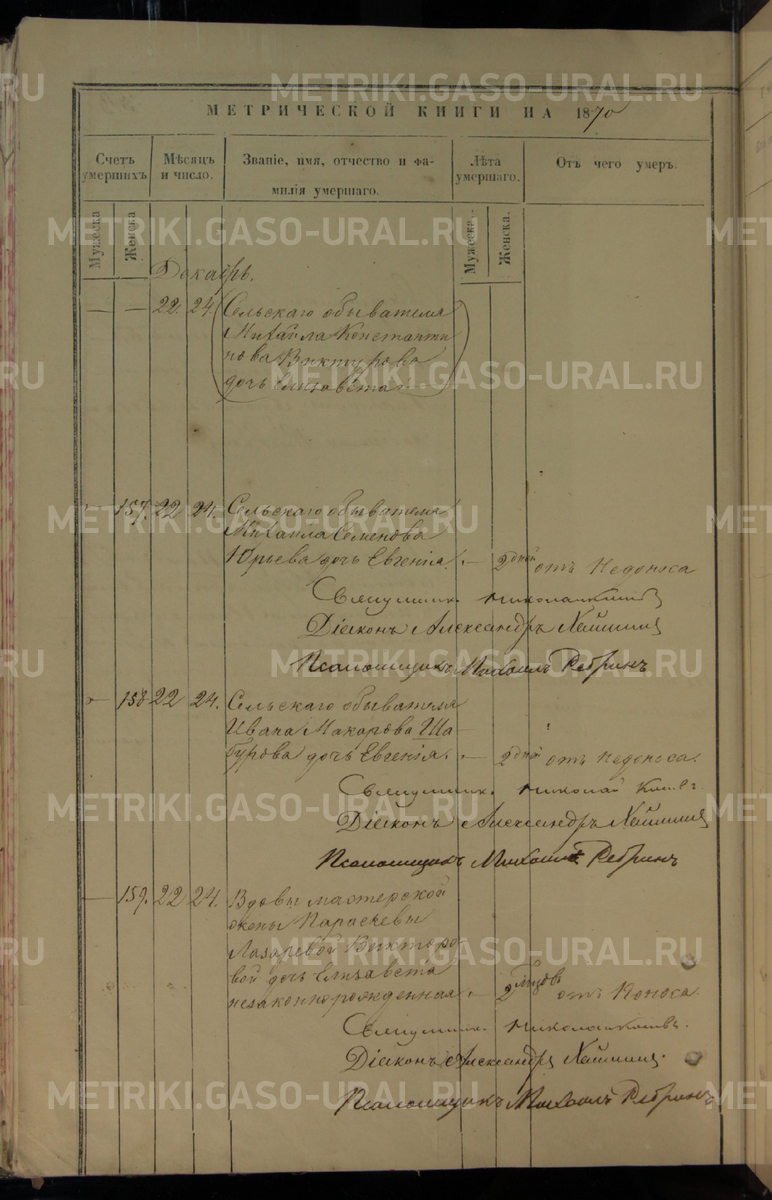 METRIKI.GASO-URAL.RU
МЕТРИЧЕСКОЙ КНИГИ НА 1870
Счетъ умершихъ
Мѣсяцъ и число.
Званіе, имя, отчество и фа-
милія умершаго.
Лѣта умершаго.
Отъ чего умеръ.
Мужеска
Женска
Мужеска.
Женска.
Декабрь.
— — 22. 24. Сельскаго обывателя
Михаила Константи
нова Викторова
дочь Елизавета
— 157. 22 24. Сельскаго обывателя
Михаила Семенова
Юрьева дочь Евгенія. — 2 дней отъ Недоноса
Священникъ Николай
Діаконъ Александръ
Псаломщикъ Михаилъ Ребринъ
— 158 22 24. Сельскаго обывателя
Ивана Макарова Ша
бурова дочь Евгенія. — 2 дней отъ недоноса.
Священникъ Николай
Діаконъ Александръ
Псаломщикъ Михаилъ Ребринъ
— 159. 22 24. Вдовы мастерской
жены Параскевы
Лазаревой Викторо
вой дочь Елизавета
незаконнорожденная. — 2 месяцовъ отъ Поноса.
Священникъ Николай
Діаконъ Александръ
Псаломщикъ Михаилъ Ребринъ